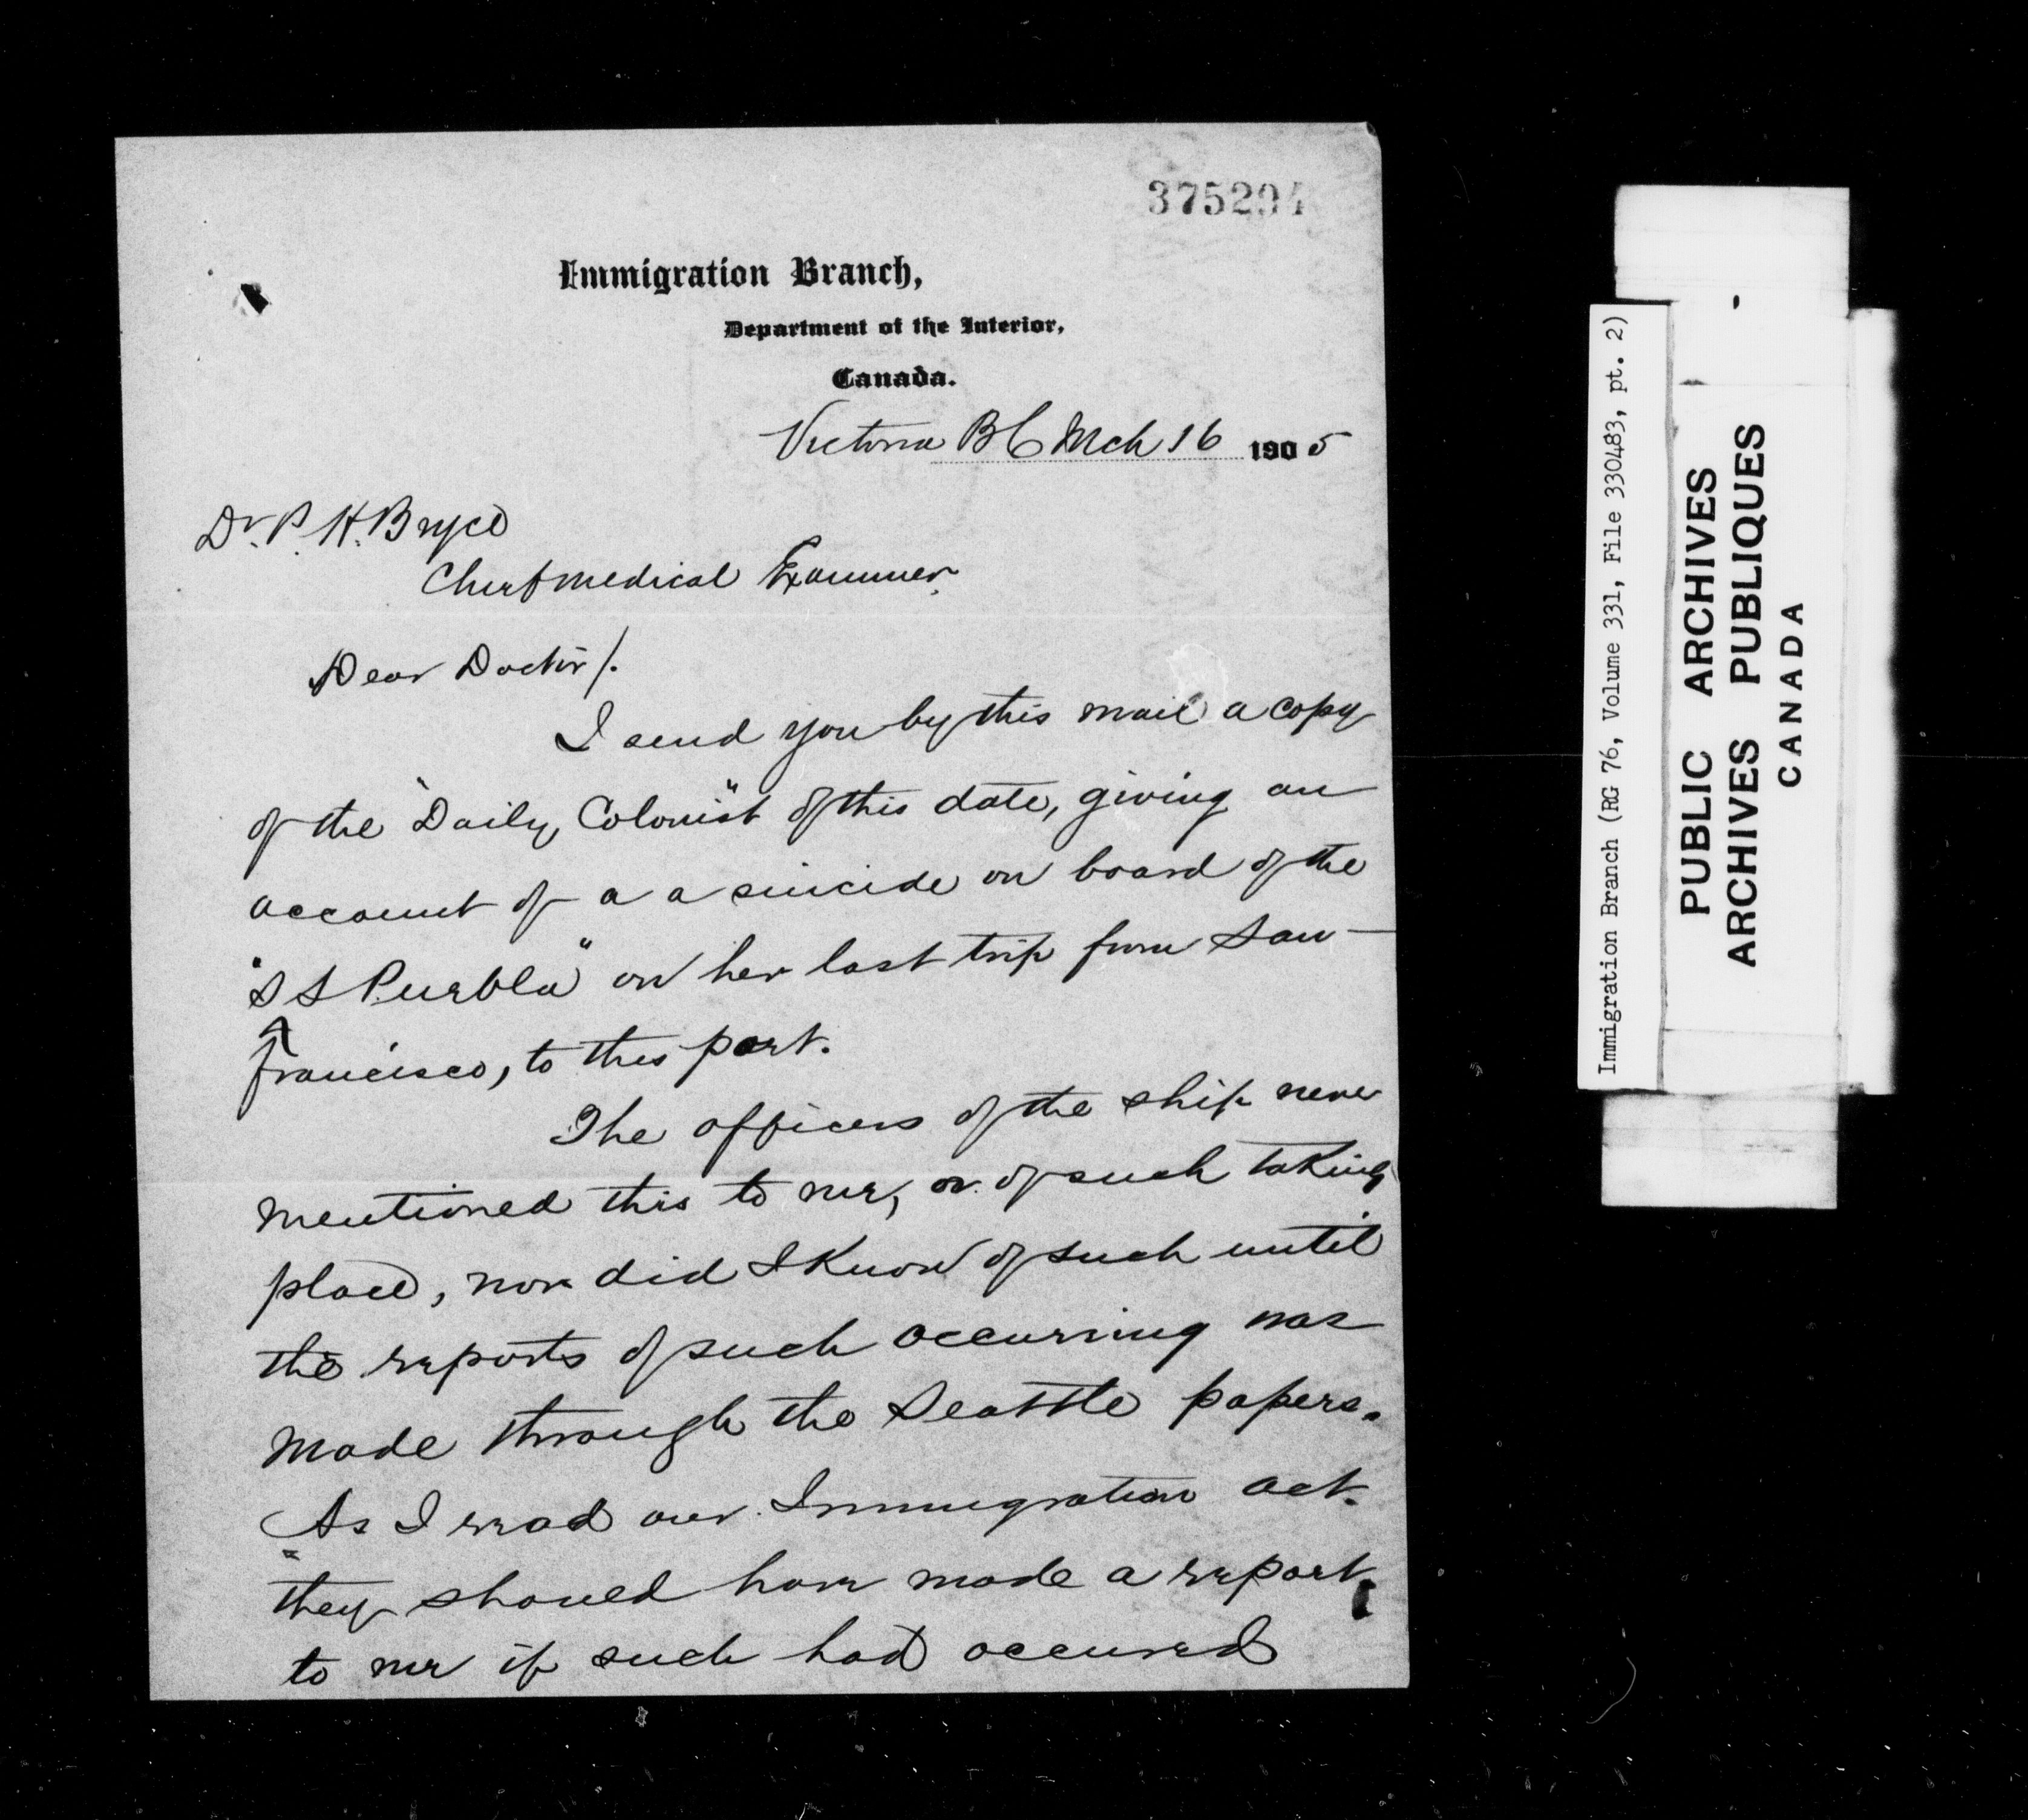 375294
Immigration Branch,
Department of the Interior,
Canada.
Victoria B C Mch 16 1905
Dr. P. H. Bryce
Chief medical Examiner.
Dear Doctor/.
I send you by this mail a copy
of the "Daily Colonist" of this date, giving an
account of a a suicide on board of the
"S S Puebla" on her last trip from San-
Francisco, to this port.
The officers of the ship never
mentioned this to me, or of such taking
place, nor did I Know of such until
the reports of such occurring was
made through the Seattle papers.
As I read our Immigration act.
they should have made a report
to me if such had occured
Immigration Branch (RG 76, Volume 331, File 330483, pt. 2)
PUBLIC ARCHIVES
ARCHIVES PUBLIQUES
CANADA